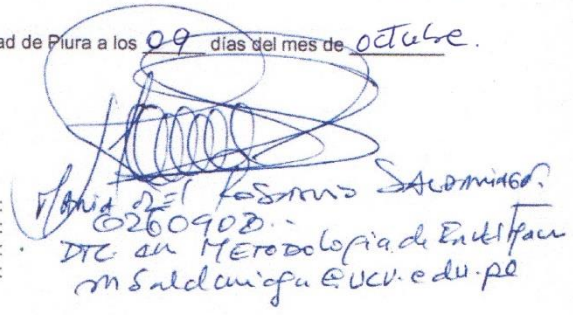 ad de Piura a los 09 días del mes de octubre.
: María del Rosario Saldarriaga.
: 
: DTC en Metodología de
: msaldarriaga@ucv.edu.pe